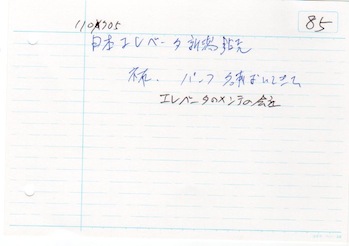 110705
85
日本エレベータ新潟
パンフ 名刺おいてきた
エレベータのメンテの会社